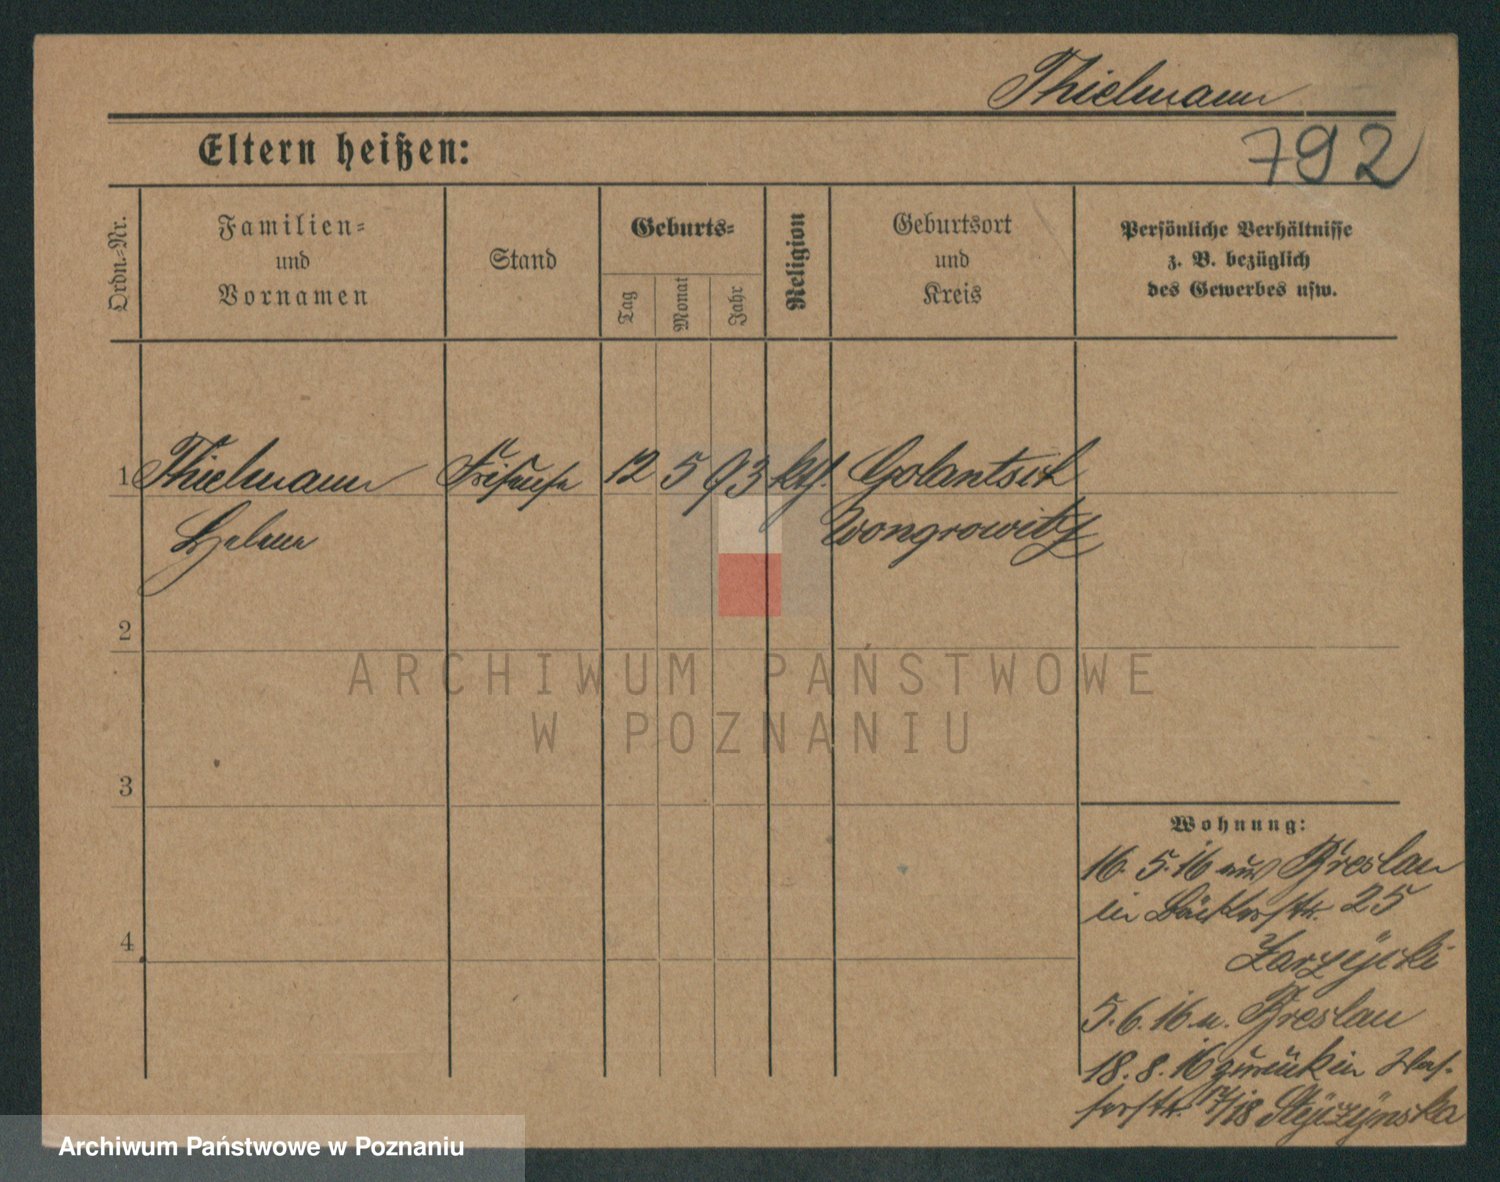 Thielmann
792
Eltern heißen:
Ordn.-Nr.
Familien-
und
Vornamen
Stand
Geburts-
Tag
Monat
Jahr
Religion
Geburtsort
und
Kreis
Persönliche Verhältnisse
z. B. bezüglich
des Gewerbes usw.
1 Thielmann Friseuse 12 5 93 kth. Golantsch
Helene Wongrowitz
2
3
4
Wohnung:
16. 5. 16 aus Breslau
in Bäckerstr. 25
Zarzycki
5. 6. 16 n. Breslau
18. 8. 16 zurück in Was-
serstr. 17/18
ARCHIWUM PAŃSTWOWE
W POZNANIU
Archiwum Państwowe w Poznaniu